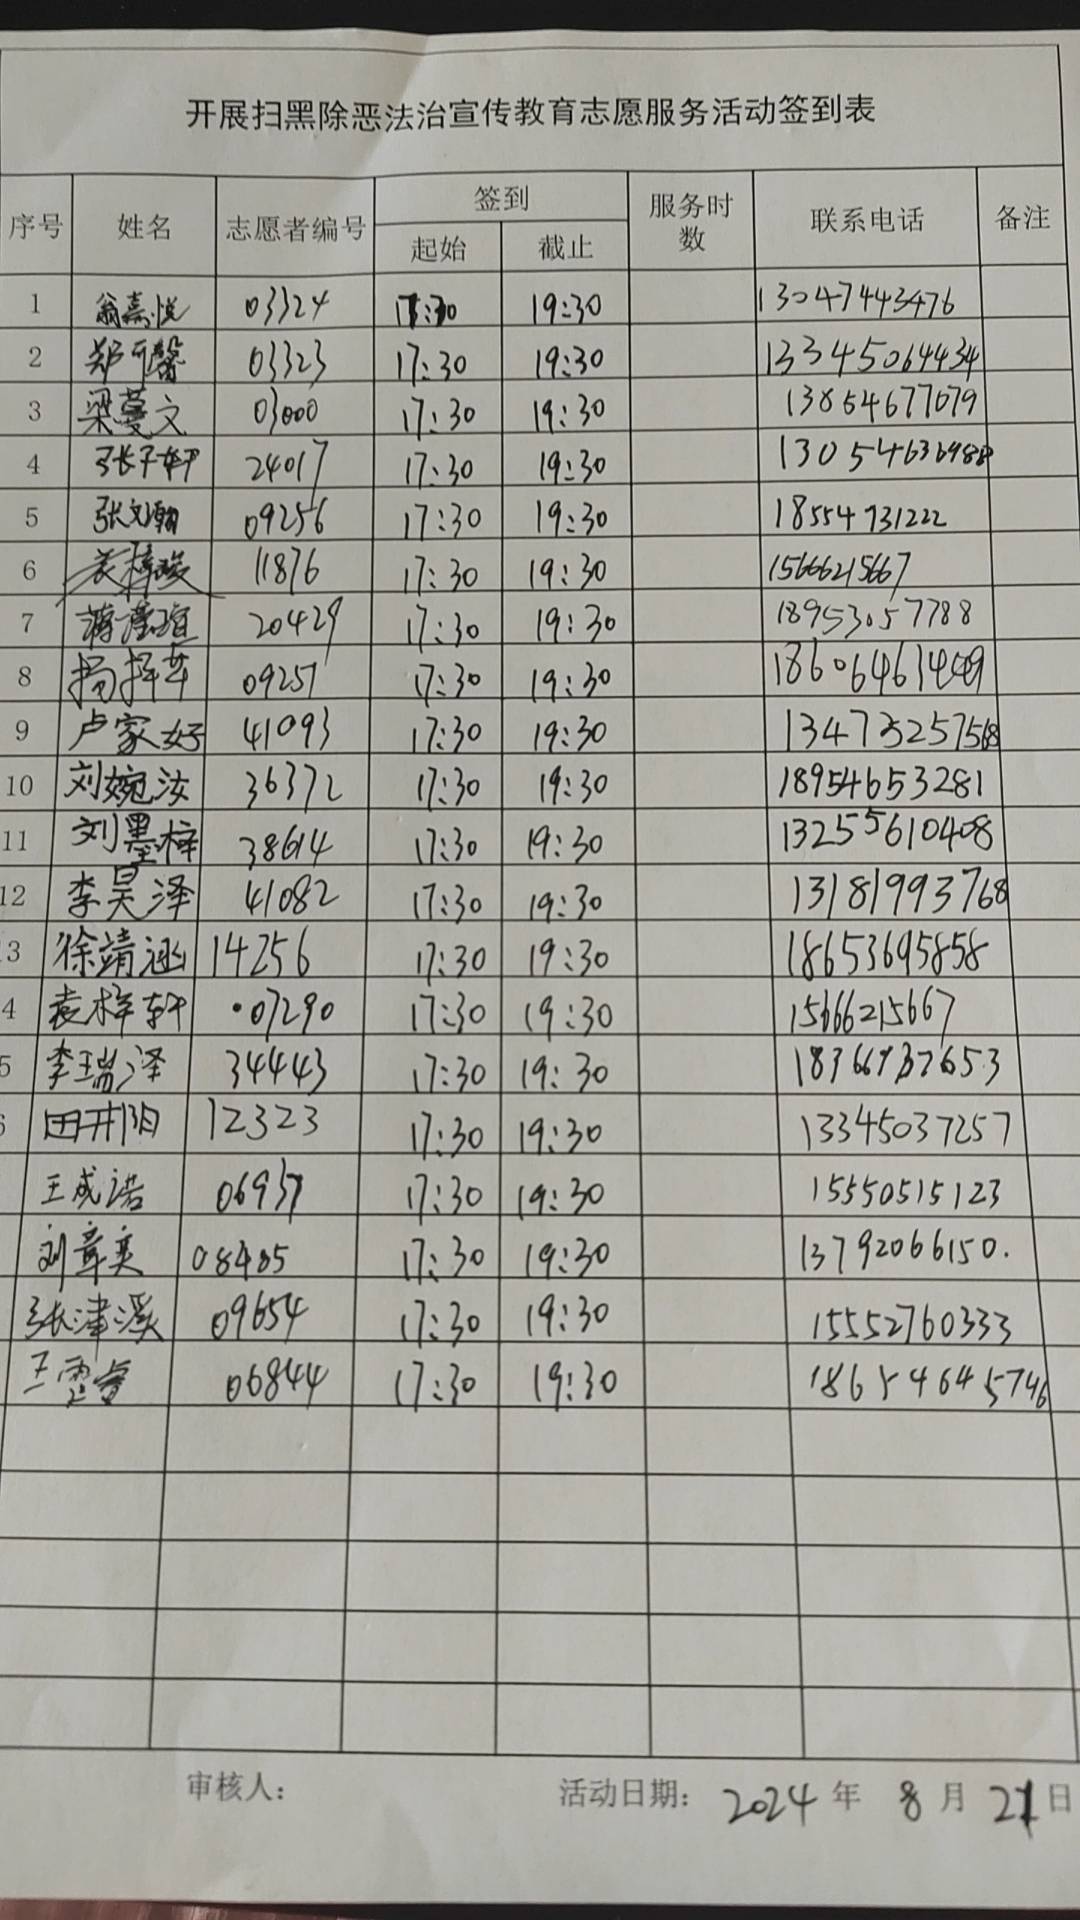 开展扫黑除恶法治宣传教育志愿服务活动签到表
序号 姓名 志愿者编号 签到 服务时数 联系电话 备注
起始 截止
1 翁嘉悦 03324 17:30 19:30 13047443476
2 郑可馨 03323 17:30 19:30 13345064434
3 梁蔓文 03000 17:30 19:30 13854677079
4 张子轩 24017 17:30 19:30
5 张文瀚 09256 17:30 19:30 18554731222
6 袁梓琰 11876 17:30 19:30 15666215667
7 20429 17:30 19:30 18953057788
8 09257 17:30 19:30
9 卢家好 41093 17:30 19:30
10 刘婉汝 36372 17:30 19:30 18954653281
11 刘墨梓 38614 17:30 19:30 13255610408
12 李昊泽 41082 17:30 19:30 13181993768
3 徐靖涵 14256 17:30 19:30 18653695858
4 袁梓轩 07290 17:30 19:30 15666215667
5 李瑞泽 34443 17:30 19:30
田井阳 12323 17:30 19:30 13345037257
王成诺 06937 17:30 19:30 15550515123
刘章奕 08405 17:30 19:30 13792066150.
张津溪 09654 17:30 19:30 15552760333
06844 17:30 19:30 18654645746
审核人： 活动日期： 2024 年 8 月 21 日